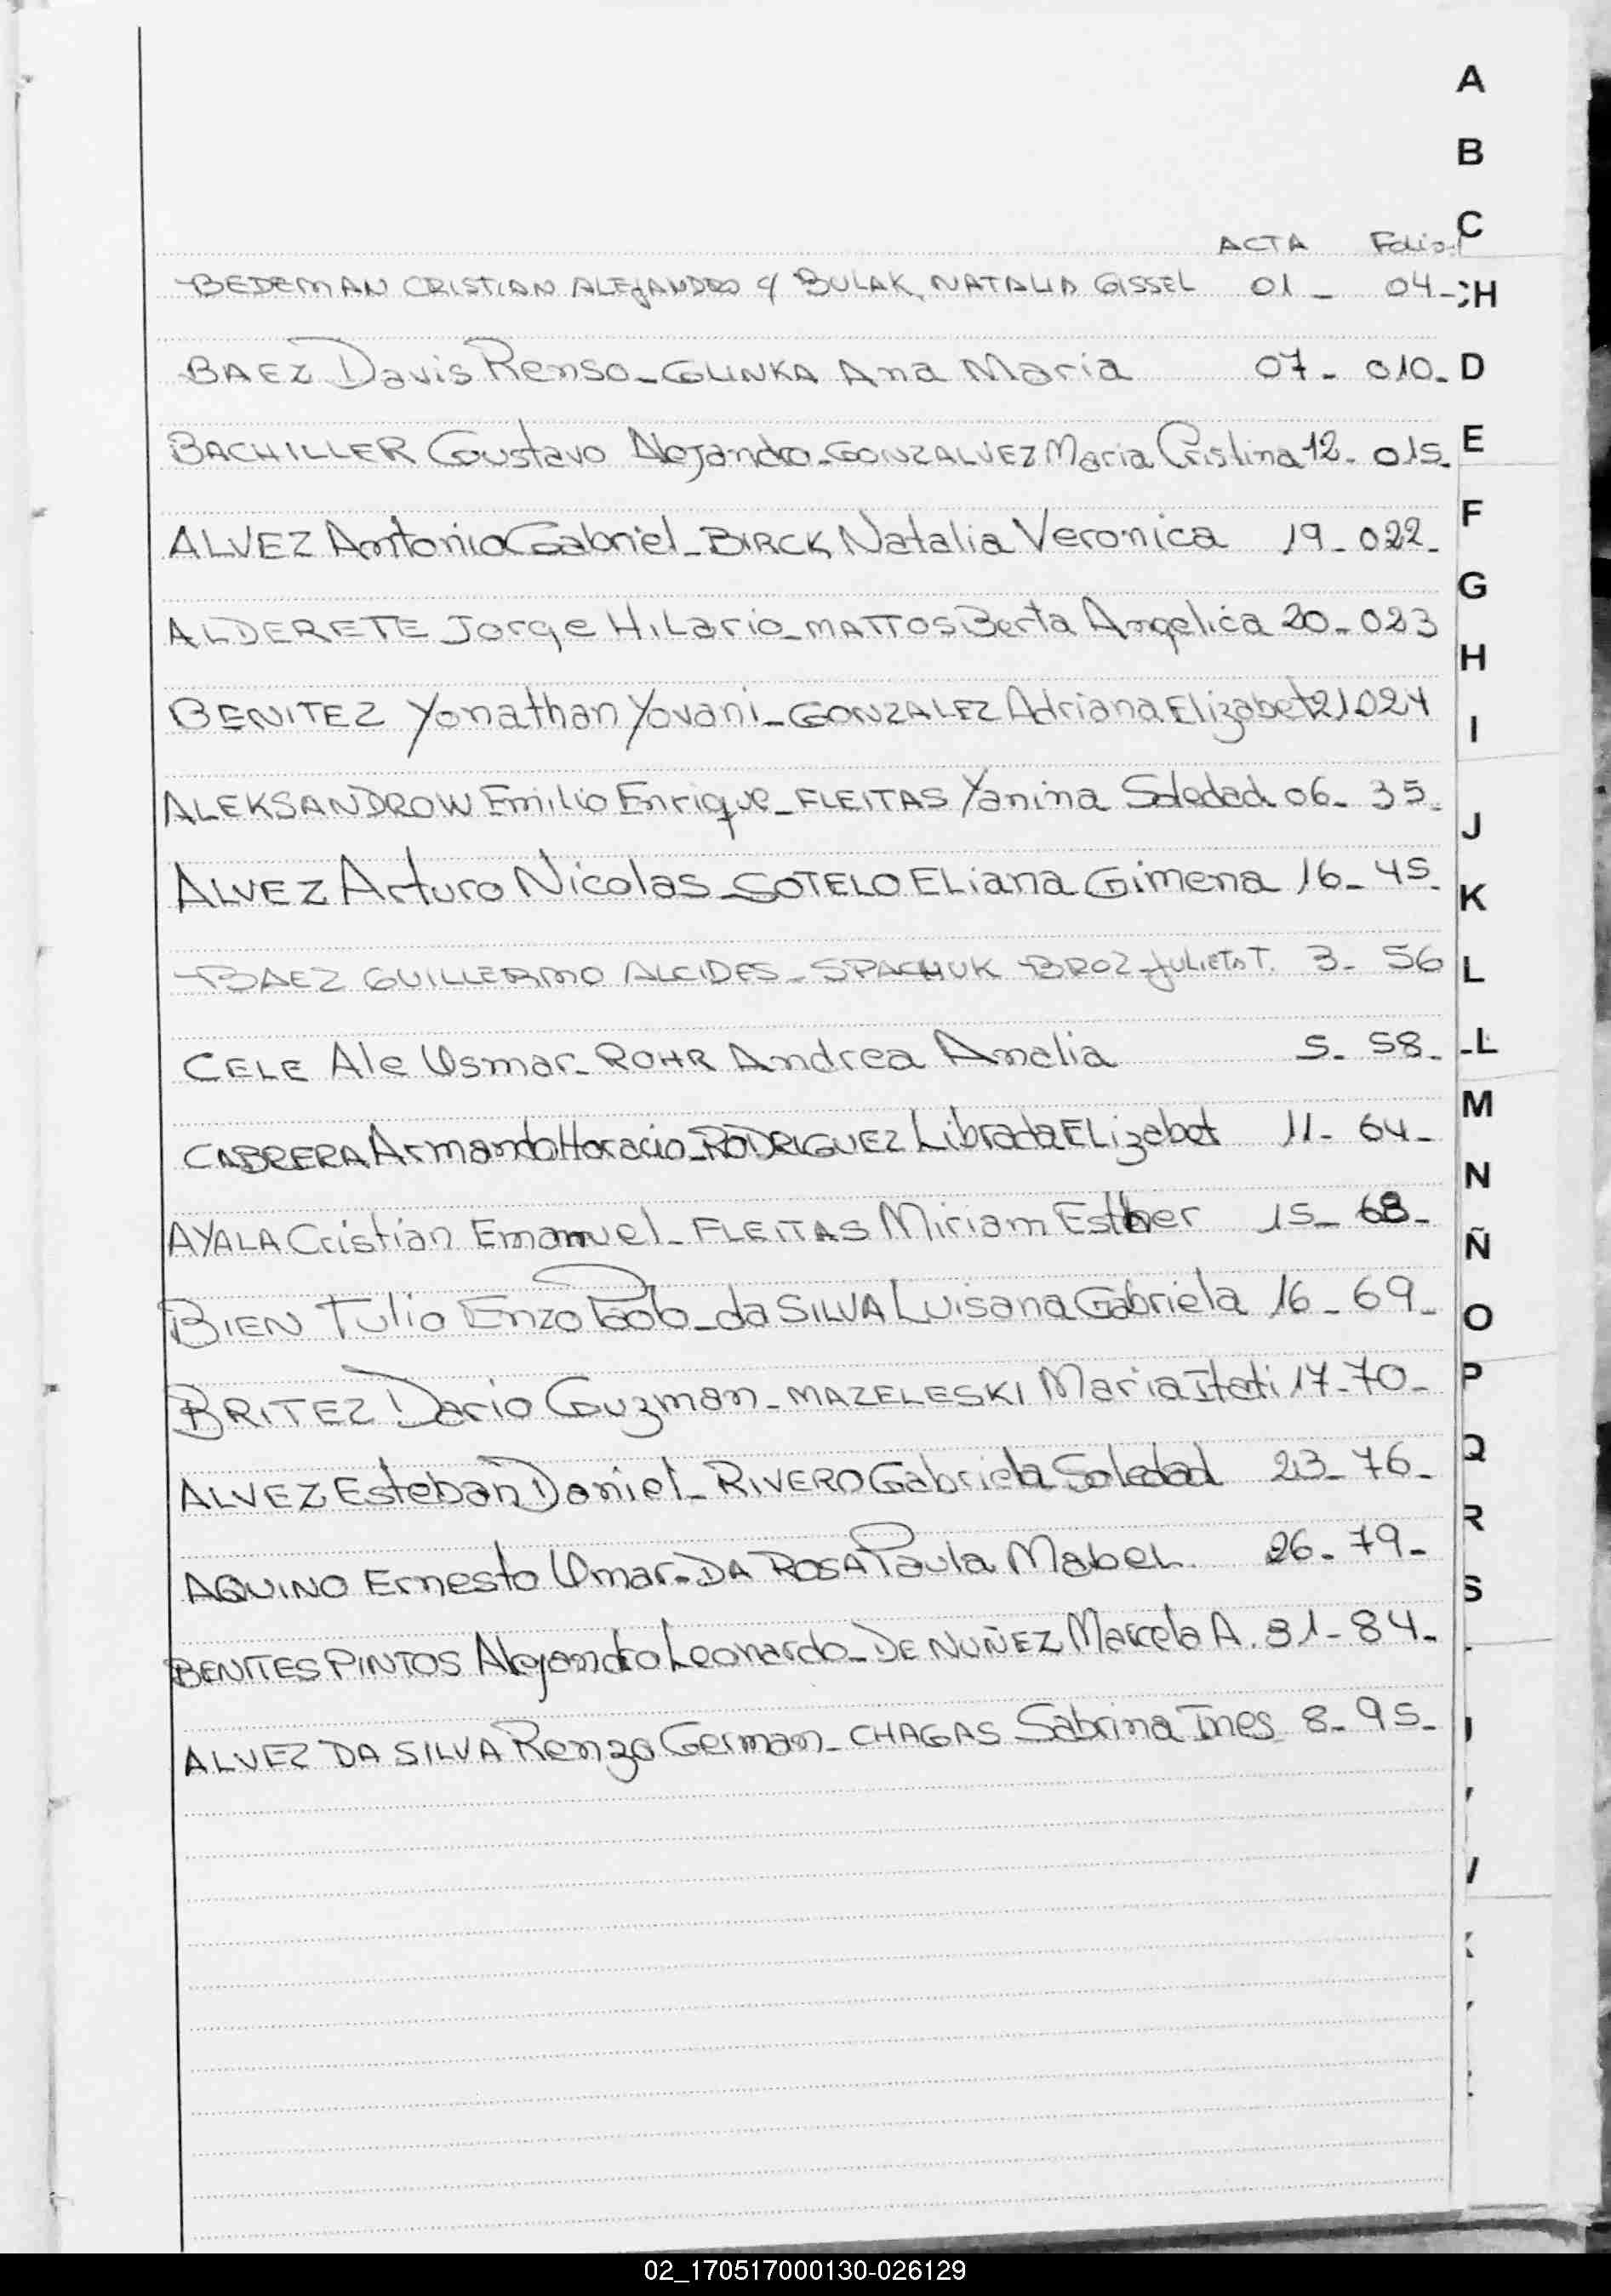 A
B
C
ACTA Folio.
BEDEMAN CRISTIAN ALEJANDRO y BULAK, NATALIA GISSEL 01 - 04-
CH
BAEZ Davis Renso - GLINKA Ana Maria 07 - 010-
D
BACHILLER Gustavo Alejandro - GONZALVEZ Maria Cristina 12 - 015-
E
F
ALVEZ Antonio Gabriel - BIRCK Natalia Veronica 19 - 022-
G
ALDERETE Jorge Hilario - MATTOS Berta Angelica 20 - 023
H
BENITEZ Yonathan Yovani - GONZALEZ Adriana Elizabet 21 024
I
ALEKSANDROW Emilio Enrique - FLEITAS Yanina Soledad 06 - 35-
J
ALVEZ Arturo Nicolas - SOTELO Eliana Gimena 16 - 45-
K
BAEZ GUILLERMO ALCIDES - SPACHUK BROZ Julieta T. 3 - 56
L
CELE Ale Osmar - ROHR Andrea Amalia 5 - 58-
LL
M
CABRERA Armando Horacio - RODRIGUEZ Librada Elizabet 11 - 64-
N
AYALA Cristian Emanuel - FLEITAS Miriam Esther 15 - 68-
Ñ
BIEN Tulio Enzo Paolo - da SILVA Luisana Gabriela 16 - 69-
O
BRITEZ Dario Guzman - MAZELESKI Maria Itati 17 - 70-
P
ALVEZ Esteban Daniel - RIVERO Gabriela Soledad 23 - 76-
Q
R
AQUINO Ernesto Omar - DA ROSA Paula Mabel 26 - 79-
S
BENITES PINTOS Alejandro Leonardo - DE NUÑEZ Marcela A. 31 - 84-
ALVEZ DA SILVA Renzo German - CHAGAS Sabrina Ines 8 - 95-
02_170517000130-026129